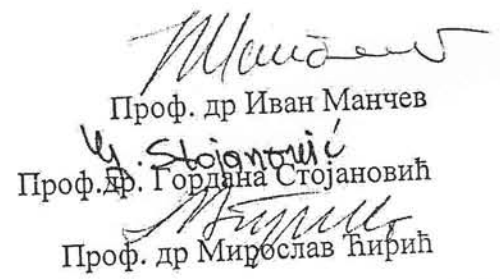 Проф. др Иван Манчев
G. Stojanović
Проф.др. Гордана Стојановић
Проф. др Мирослав Ћирић